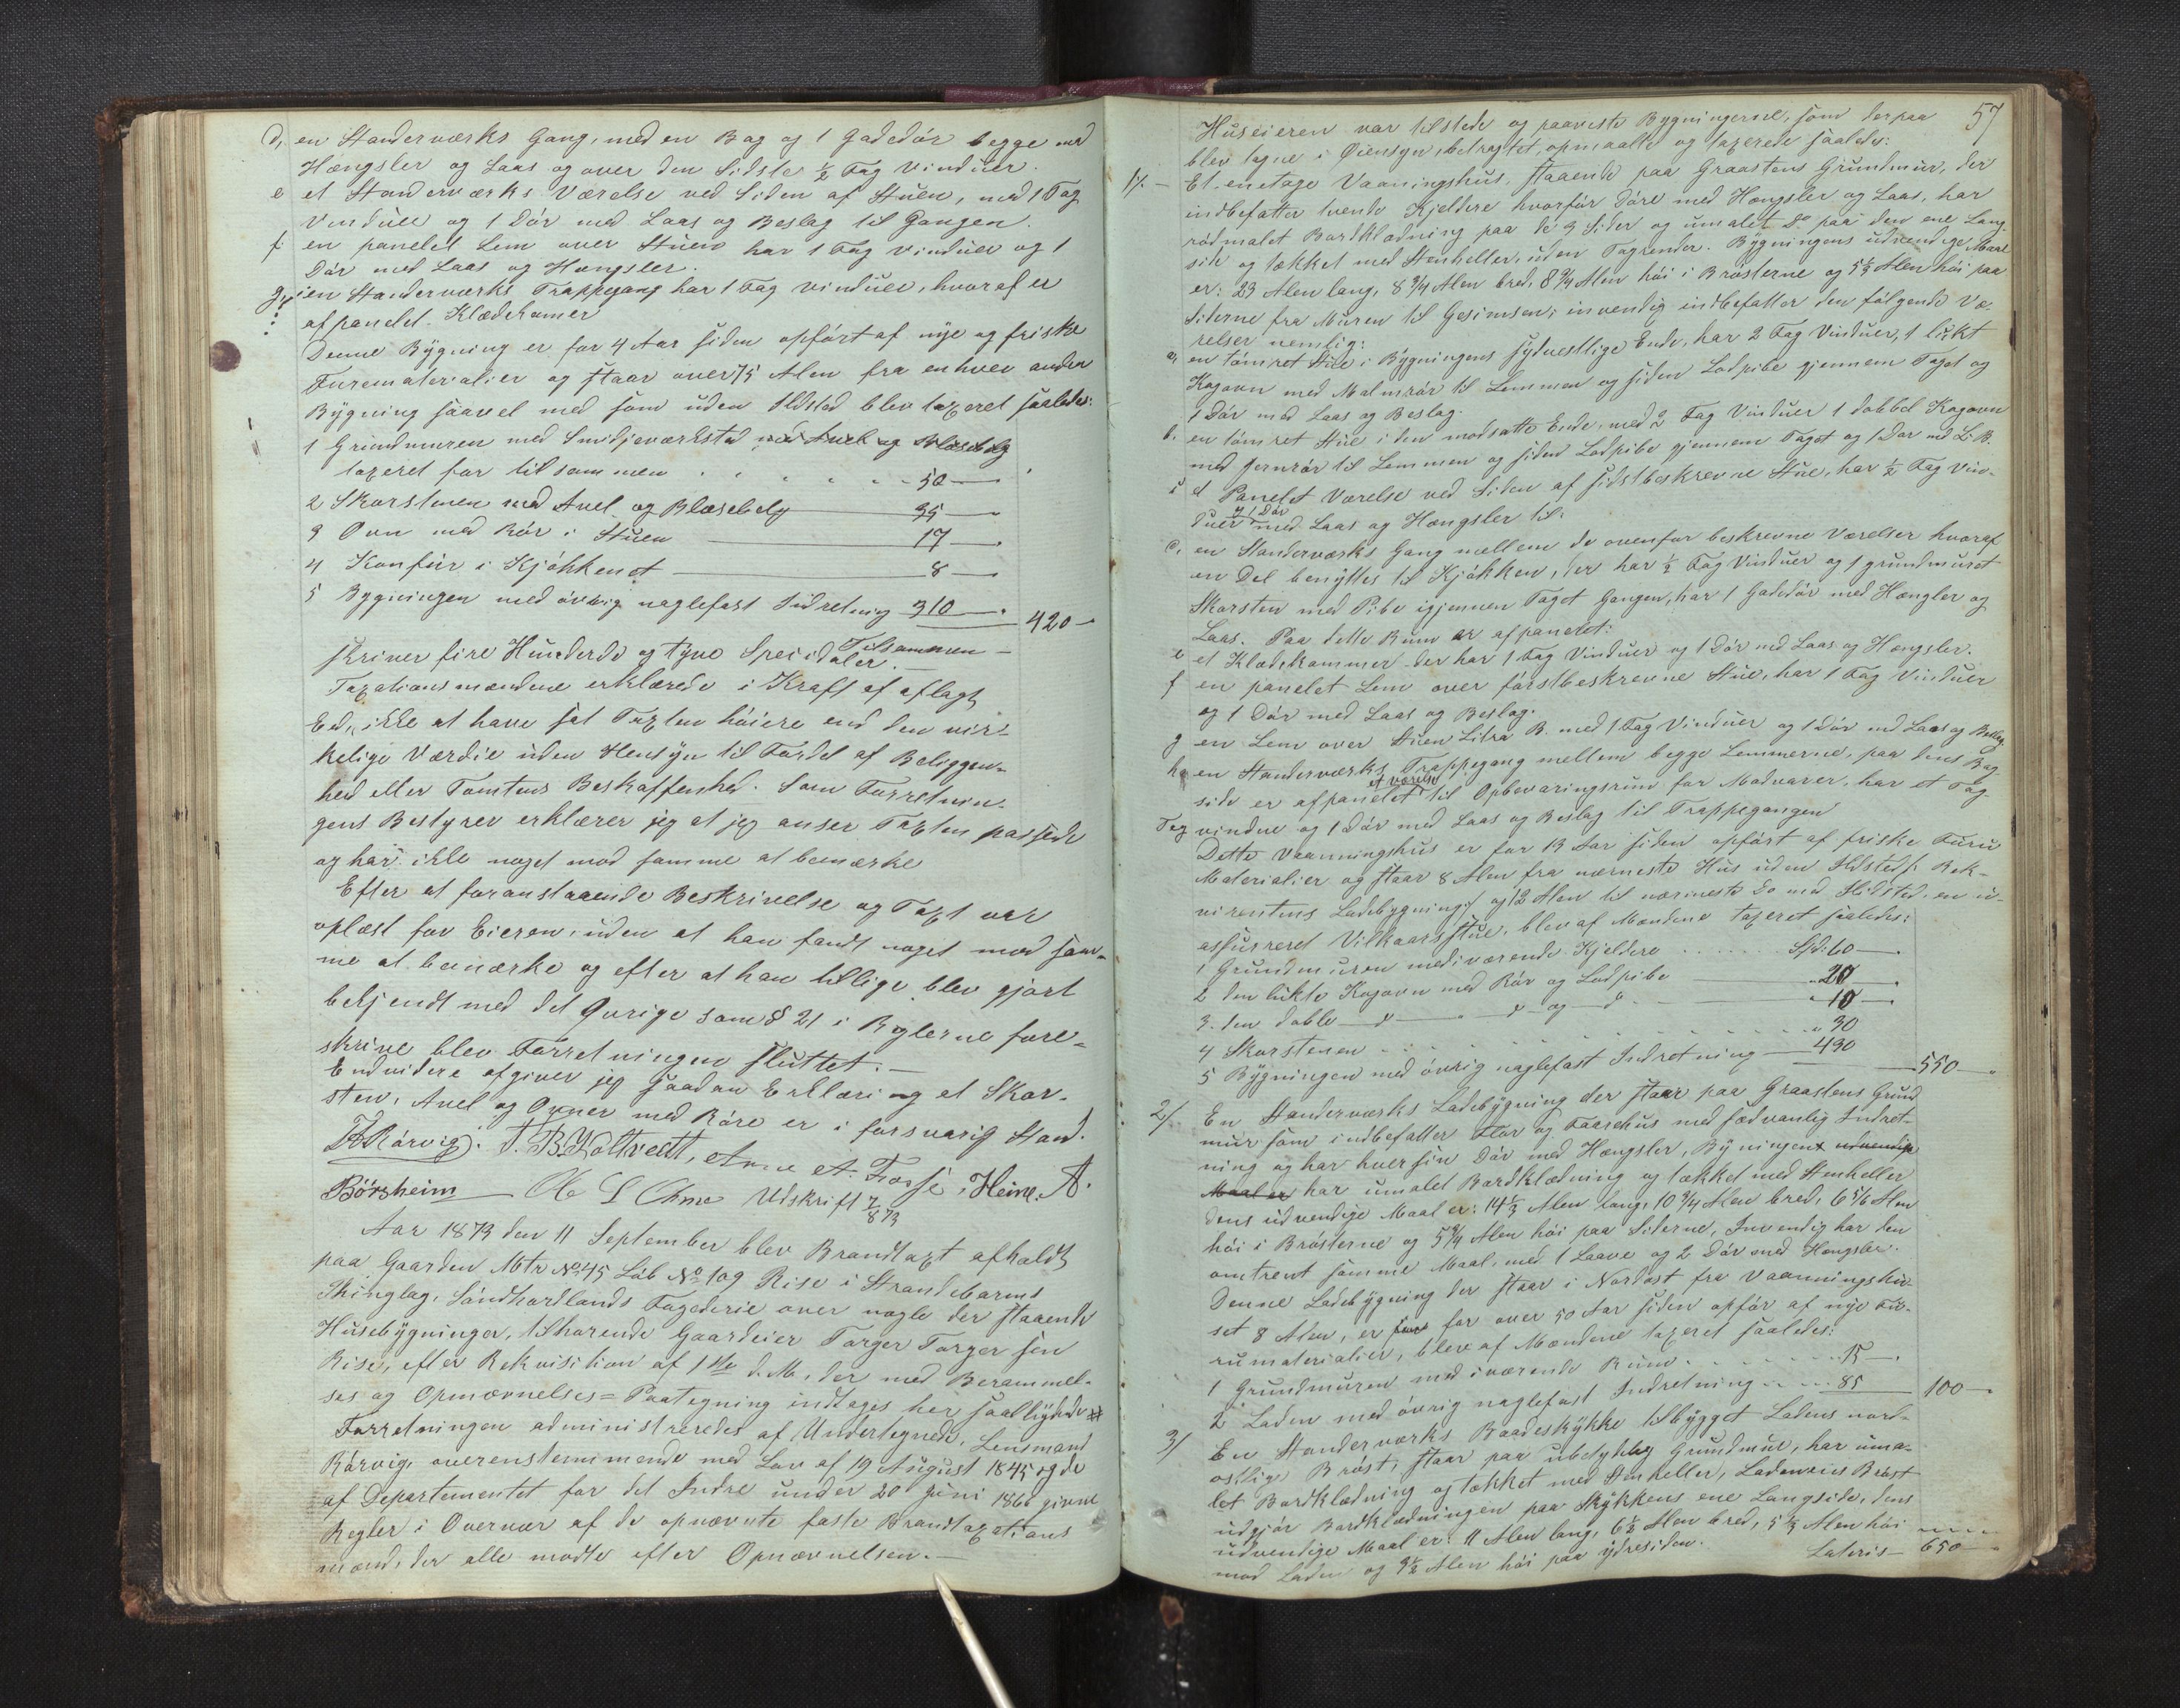 d, en Standerværks Gang, med en Bag og 1 Gadedör begge med
Hængsler og Laas og over den Sidste ½ Fag Vinduer.
e et Standerværks Værelse ved Siden af Stuen, med 1 Fag
Vinduer og 1 Dör med Laas og Beslag til Gangen.
f en panelet Lem over Stuen har 1 Fag vinduer og 1
Dör med Laas og Hængsler.
g, en Standerværks Trappegang har 1 Fag vinduer, hvoraf er
afpanelet Klædekamer
Denne Bygning er for 4 Aar siden opfört af nye og friske
Furematerialier og staar over 75 Alen fra enhver anden
Bygning saavel med som uden Ildsted blev taxeret saaledes:
1 Grundmuren med Smidjeværksted med Avel og Blæsebelg
taxeret for tilsammen . . . . . 50 —
2 Skorstenen med Avel og Blæsebelg — 35 —
3 Ovn med Rör i Stuen — 17 —
4 Komfür i Kjökkenet — 8 —
5 Bygningen med övrig naglefast Indretning 310 — 420 —
Tilsammen —
skriver fire Hunderde og tyve Speciedaler.
Taxationsmændene erklærede i Kraft af aflagt
Eed, ikke at have sat Taxten höiere end den vir-
kelige Værdie uden Hensyn til Fordel af Beliggen-
hed eller Tomtens Beskaffenhed. Som Forretnin-
gens Bestyrer erklærer jeg at jeg anser Taxten passende
og har ikke noget mod samme at bemærke
Efter at foranstaaende Beskrivelse og Taxt var
oplæst for Eieren, uden at han fandt noget mod sam-
me at bemærke og efter at han tillige blev gjort
bekjendt med det Övrige som § 21 i Reglerne fore-
skrive blev Forretningen sluttet. —
Endvidere afgiver jeg saadan Erklæring at Skor-
sten, Avel og Ovner med Röre er i forsvarig Stand.
Rörvig. T. B. Koltveedt, Arne A. Fosse, Heine A.
Börsheim — Ole L Ohme Udskrift 7/8 73
Aar 1873 den 11 September blev Brandtaxt afholdt
paa Gaarden Mtr No 45 Löb No 109 Rise i Strandebarms
Thinglag, Söndhordlands Fogederie over nogle der staaende
Husebygninger, tilhørende Gaardeier Torger Torgersen
Rise, efter Rekvisition af 1ste d. M., der med Berammel-
ses og Opnævnelses-Paategning indtages her saalydende #
Forretningen administreredes af Undertegnede, Lensmand
Rörvig, overensstemmende med Lov af 19 August 1845 og de
af Departementet for det Indre under 20 Juni 1866 givne
Regler i Overvær af de opnævnte faste Brandtaxations
mænd, der alle mødte efter Opnævnelsen. —
57
Huseieren var tilstede og paaviste Bygningerne, som derpaa
blev tagne i Øiensyn, betragtet, opmaalte og taxerede saaledes:
1/. — Et enetage Vaaningshus, staaende paa Graastens Grundmur, der
indbefatter tvende Kjeldere hvorfor Döre med Hængsler og Laas, har
rödmalet Bordklædning paa de 3 Sider og umalet Do paa den ene Lang-
side og tækket med Stenheller, uden Tagrender. Bygningens udvendige Maal
er: 23 Alen lang, 8 3/4 Alen bred, 8 3/4 Alen höi i Brösterne og 5 1/3 Alen höi paa
Siderne fra Muren til Gesimsen; invendig indbefatter den fölgende Væ-
relser nemlig:
a, en tömret Stue i Bygningens sydvestlige Ende, har 2 Fag Vinduer, 1 lükt
Kogovn med Malmrör til Lemmen og siden Lodpibe gjennem Taget og
1 Dör med Laas og Beslag.
b. en tömret Stue i den modsatte Ende, med 2 Fag Vinduer 1 dobbel Kogovn
med Jernrör til Lemmen og siden Lodpibe gjennem Taget og 1 Dør med L. B.
c et Panelet Værelse ved Siden af sidstbeskrevne Stue, har ½ Fag Vin-
duer og 1 Dör med Laas og Hængsler til.
d, en Standerværks Gang mellem de ovenfor beskrevne Værelser hvoraf
en Del benyttes til Kjökken, der har ½ Fag Vinduer og 1 grundmuret
Skorsten med Pibe igjennem Taget Gangen, har 1 Gadedör med Hængler og
Laas. Paa dette Rum er afpanelet:
e et Klædekammer der har 1 Fag Vinduer og 1 Dör med Laas og Hængsler.
f en panelet Lem over förstbeskrevne Stue, har 1 Fag Vinduer
og 1 Dör med Laas og Beslag.
g en Lem over Stuen Litra B. med 1 Fag Vinduer og 1 Dör med Laas og Beslag.
h, en Standerværks Trappegang mellem begge Lemmerne, paa dens Bag-
side er afpanelet et værelse til Opbevaringsrum for Madvarer, har et Fag
Fag vindue og 1 Dör med Laas og Beslag til Trappegangen
Dette Vaaningshus er for 13 Aar siden opfört af friske Furu
Materialier og staar 8 Alen fra nærmeste Hus uden Ildsted /: Rek-
virentens Ladebygning :/ og 12 Alen til nærmeste Do med Ildsted, en u-
assureret Vilkaarsstue, blev af Mændene taxeret saaledes:
1 Grundmuren med iværende Kjeldere . . . . . Spd: 60 —
2 den lükte Kogovn med Rör og Lodpibe — „ 20 —
3. den doble — „ — „ — og — „ — „ 10 —
4 Skorstenen . . . . . „ 30
5 Bygningen med övrig naglefast Indretning — 430 — 550 —
2/. En Standerværks Ladebygning der staar paa Graastens Grund
mur som indbefatter Flor og Faarehus med sædvanlig Indret-
ning og har hver sin Dör med Hængsler, Byningens udvendige
Maal er har umalet Bordklædning og tækket med Stenheller
dens udvendige Maal er: 14 1/3 Alen lang, 10 3/4 Alen bred, 6 5/6 Alen
höi i Brösterne og 5 3/4 Alen höi paa Siderne, Invendig har den
omtrent samme Maal, med 1 Laave og 2 Dör med Hængsler.
Denne Ladebygning der staar i Nordost fra Vaanningshu-
set 8 Alen, er for over 50 Aar siden opför af nye Fu-
rumaterialier, blev af Mændene taxeret saaledes:
1 Grundmuren med iværende Rum . . . . . 15 —
2 Laden med övrig naglefast Indretning . . . 85 — 100 —
3/ En Standerværks Baadeskykke tilbygget Ladens nord-
ostlige Bröst, staar paa ubetydelig Grundmur, har uma-
let Bordklædning og tækket med Stenheller, Ladens Bröst
udgjör Bordklædningen paa Skykkens ene Langside, dens
udvendige Maal er: 11 Alen lang, 6 ½ Alen bred, 5 1/3 Alen höi
mod Laden og 3 ½ Alen höi paa ydresiden. Lateris 650 —